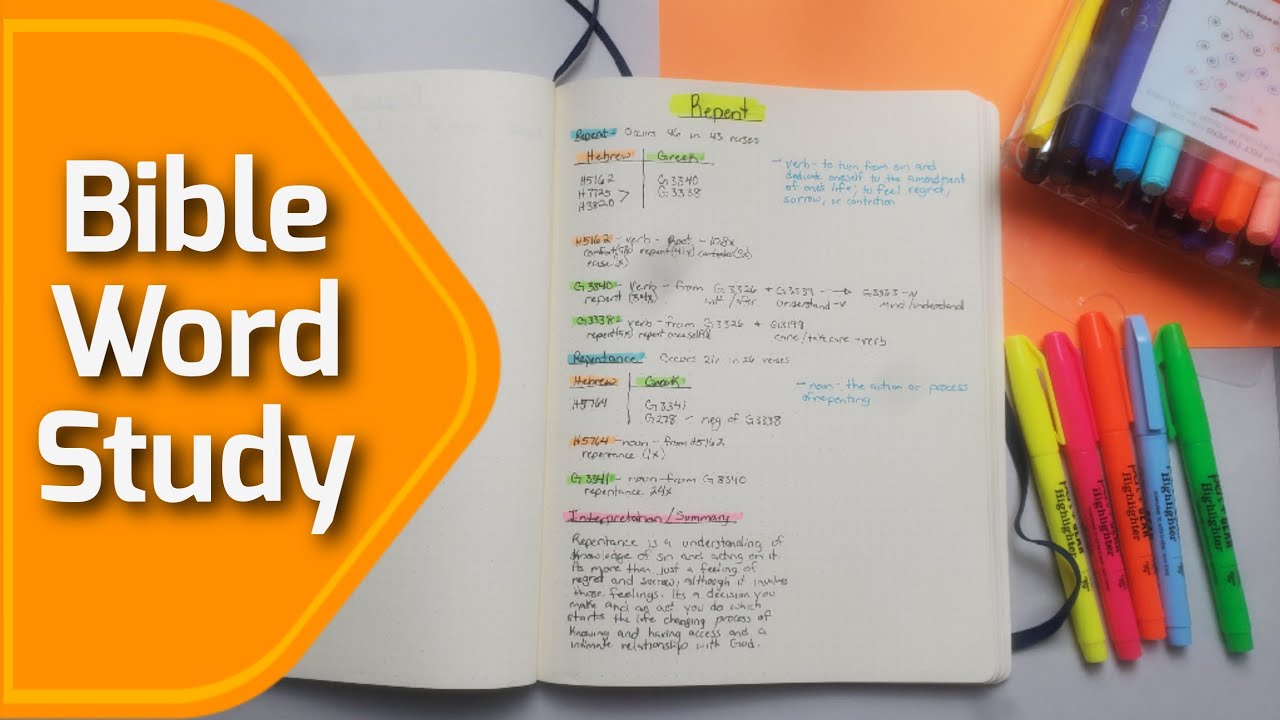 Bible
Word
Study
Repent
Repent - Occurs 46 in 43 verses
Hebrew Greek
H5162 G3340
H7725 G3338
H3820 >
- verb - to turn from sin and
dedicate oneself to the amendment
of one's life; to feel regret,
sorrow, or contrition
H5162 - verb - Root - 108x
comfort repent (41x)
G3340 - verb - from G3326 + G3539 - → G3563 - N
repent (34x) with / after understand - v Mind/understand
G3338 - verb - from G3326 + G3199
repent (5x) repent oneself care / take care - verb
Repentance Occurs in 26 verses
Hebrew Greek
H5764 G3341
G278 < neg of G3338
- noun - the action or process
of repenting
H5764 - noun - from H5162
repentance (1x)
G3341 - noun - from G3340
repentance 24x
Interpretation / Summary
Repentance is a understanding of
knowledge of sin and acting on it.
Its more than just a feeling of
regret and sorrow, although it involves
those feelings. Its a decision you
make and an act you do which
starts the life changing process of
knowing and having access and a
intimate relationship with God.
Highlighter
Highlighter
Highlighter
Highlighter
Highlighter